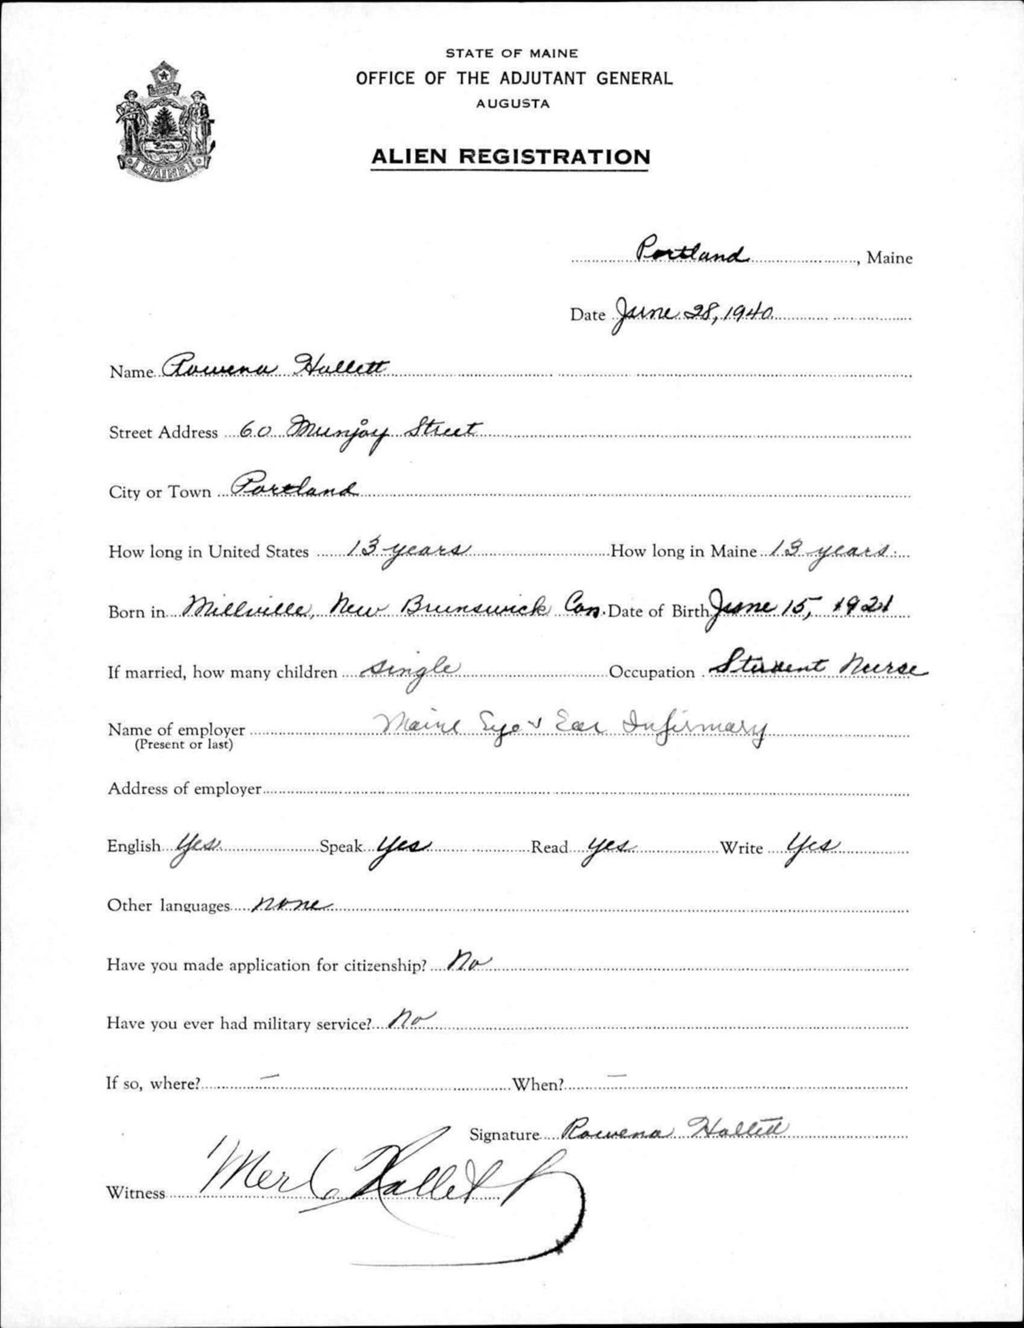 STATE OF MAINE
OFFICE OF THE ADJUTANT GENERAL
AUGUSTA
ALIEN REGISTRATION
MAINE
Portland, Maine
Date June 28, 1940
Name Rowena Hallett
Street Address 60 Munjoy Street
City or Town Portland
How long in United States 13 years How long in Maine 13 years
Born in Millville, New Brunswick Can. Date of Birth June 15, 1921
If married, how many children single Occupation Student Nurse
Name of employer Maine Eye & Ear Infirmary
(Present or last)
Address of employer
English Yes Speak Yes Read Yes Write Yes
Other languages none
Have you made application for citizenship? No
Have you ever had military service? No
If so, where? — When? —
Signature Rowena Hallett
Witness Hallett